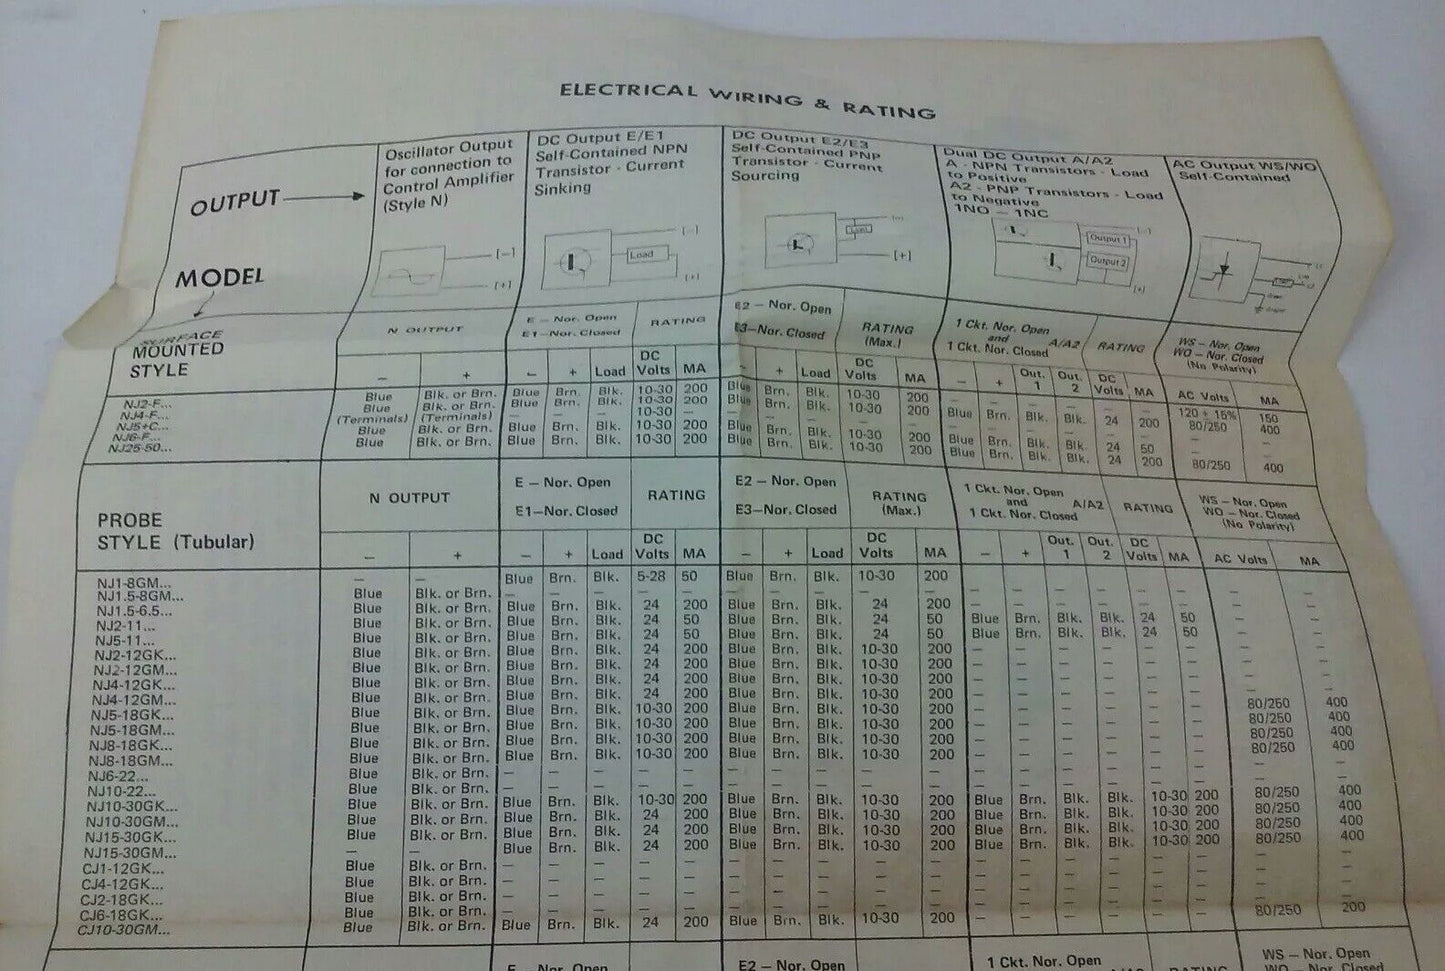 ELECTRICAL WIRING & RATING
OUTPUT
MODEL
Oscillator Output
for connection to
Control Amplifier
(Style N)
[—]
[+]
DC Output E/E1
Self-Contained NPN
Transistor - Current
Sinking
Load
[—]
[+]
DC Output E2/E3
Self-Contained PNP
Transistor - Current
Sourcing
Load
[—]
[+]
Dual DC Output A/A2
A - NPN Transistors - Load
to Positive
A2 - PNP Transistors - Load
to Negative
1NO — 1NC
Output 1
Output 2
[—]
[+]
AC Output WS/WO
Self-Contained
SURFACE
MOUNTED
STYLE
N OUTPUT
E — Nor. Open
E1—Nor. Closed
RATING
E2 — Nor. Open
E3—Nor. Closed
RATING
(Max.)
1 Ckt. Nor. Open
and A/A2
1 Ckt. Nor. Closed
RATING
WS — Nor. Open
WO — Nor. Closed
(No Polarity)
— + — + Load DC Volts MA — + Load DC Volts MA — + Out. 1 Out. 2 DC Volts MA AC Volts MA
NJ2-F... Blue Blk. or Brn. Blue Brn. Blk. 10-30 200 Blue Brn. Blk. 10-30 200 — — — — — — 120 + 15% 150
NJ4-F... Blue Blk. or Brn. Blue Brn. Blk. 10-30 200 Blue Brn. Blk. 10-30 200 Blue Brn. Blk. Blk. 24 200 80/250 400
NJ5+C... (Terminals) (Terminals) — — — 10-30 — — — — — — — — — — — — — —
NJ6-F... Blue Blk. or Brn. Blue Brn. Blk. 10-30 200 Blue Brn. Blk. 10-30 200 Blue Brn. Blk. Blk. 24 50 — —
NJ25-50... Blue Blk. or Brn. Blue Brn. Blk. 10-30 200 Blue Brn. Blk. 10-30 200 Blue Brn. Blk. Blk. 24 200 80/250 400
PROBE
STYLE (Tubular)
N OUTPUT
E — Nor. Open
E1—Nor. Closed
RATING
E2 — Nor. Open
E3—Nor. Closed
RATING
(Max.)
1 Ckt. Nor. Open
and A/A2
1 Ckt. Nor. Closed
RATING
WS — Nor. Open
WO — Nor. Closed
(No Polarity)
— + — + Load DC Volts MA — + Load DC Volts MA — + Out. 1 Out. 2 DC Volts MA AC Volts MA
NJ1-8GM... — — Blue Brn. Blk. 5-28 50 Blue Brn. Blk. 10-30 200 — — — — — — — —
NJ1.5-8GM... Blue Blk. or Brn. — — — — — — — — — — — — — — — — — —
NJ1.5-6.5... Blue Blk. or Brn. Blue Brn. Blk. 24 200 Blue Brn. Blk. 24 200 — — — — — — — —
NJ2-11... Blue Blk. or Brn. Blue Brn. Blk. 24 50 Blue Brn. Blk. 24 50 Blue Brn. Blk. Blk. 24 50 — —
NJ5-11... Blue Blk. or Brn. Blue Brn. Blk. 24 50 Blue Brn. Blk. 24 50 Blue Brn. Blk. Blk. 24 50 — —
NJ2-12GK... Blue Blk. or Brn. Blue Brn. Blk. 24 200 Blue Brn. Blk. 10-30 200 — — — — — — — —
NJ2-12GM... Blue Blk. or Brn. Blue Brn. Blk. 24 200 Blue Brn. Blk. 10-30 200 — — — — — — — —
NJ4-12GK... Blue Blk. or Brn. Blue Brn. Blk. 24 200 Blue Brn. Blk. 10-30 200 — — — — — — — —
NJ4-12GM... Blue Blk. or Brn. Blue Brn. Blk. 24 200 Blue Brn. Blk. 10-30 200 — — — — — — — —
NJ5-18GK... Blue Blk. or Brn. Blue Brn. Blk. 10-30 200 Blue Brn. Blk. 10-30 200 — — — — — — 80/250 400
NJ5-18GM... Blue Blk. or Brn. Blue Brn. Blk. 10-30 200 Blue Brn. Blk. 10-30 200 — — — — — — 80/250 400
NJ8-18GK... Blue Blk. or Brn. Blue Brn. Blk. 10-30 200 Blue Brn. Blk. 10-30 200 — — — — — — 80/250 400
NJ8-18GM... Blue Blk. or Brn. Blue Brn. Blk. 10-30 200 Blue Brn. Blk. 10-30 200 — — — — — — 80/250 400
NJ6-22... Blue Blk. or Brn. — — — — — — — — — — — — — — — — — —
NJ10-22... Blue Blk. or Brn. — — — — — — — — — — — — — — — — — —
NJ10-30GK... Blue Blk. or Brn. Blue Brn. Blk. 10-30 200 Blue Brn. Blk. 10-30 200 Blue Brn. Blk. Blk. 10-30 200 80/250 400
NJ10-30GM... Blue Blk. or Brn. Blue Brn. Blk. 24 200 Blue Brn. Blk. 10-30 200 Blue Brn. Blk. Blk. 10-30 200 80/250 400
NJ15-30GK... Blue Blk. or Brn. Blue Brn. Blk. 24 200 Blue Brn. Blk. 10-30 200 Blue Brn. Blk. Blk. 10-30 200 80/250 400
NJ15-30GM... — — Blue Brn. Blk. 24 200 Blue Brn. Blk. 10-30 200 Blue Brn. Blk. Blk. 10-30 200 80/250 400
CJ1-12GK... Blue Blk. or Brn. — — — — — — — — — — — — — — — — — —
CJ4-12GK... Blue Blk. or Brn. — — — — — — — — — — — — — — — — — —
CJ2-18GK... Blue Blk. or Brn. — — — — — — — — — — — — — — — — — —
CJ6-18GK... Blue Blk. or Brn. — — — — — — — — — — — — — — — — — —
CJ10-30GM... Blue Blk. or Brn. Blue Brn. Blk. 24 200 Blue Brn. Blk. 10-30 200 — — — — — — 80/250 200
E — Nor. Open
E2 — Nor. Open
1 Ckt. Nor. Open
A/A2
RATING
WS — Nor. Open
WO — Nor. Closed